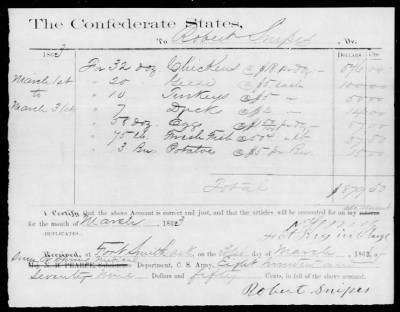 The Confederate States,
To Robert Snipes, Dr.
1863 Dollars Cts
March 1st For 32 doz Chickens @ $18 pr doz 576 00
to " 20 Geese @ $5 each 100 00
March 31st " 10 Turkeys @ $5 50 00
" 7 Duck @ $2 14 00
" 58 doz Eggs @ 87 00
" 75 lb Fresh Fish @ 50 37 50
" 3 Bu Potatoes @ $5 pr Bu 15 00
Total $879 50
I Certify that the above Account is correct and just, and that the articles will be accounted for on my
for the month of March 1863
(DUPLICATES.) in Charge
Received, at Fort Smith Ark the 31st of March 1863, of
Department, C. S. Army, Eight Hundred
Seventy Nine Dollars and fifty Cents, in full of the above account.
Robert Snipes